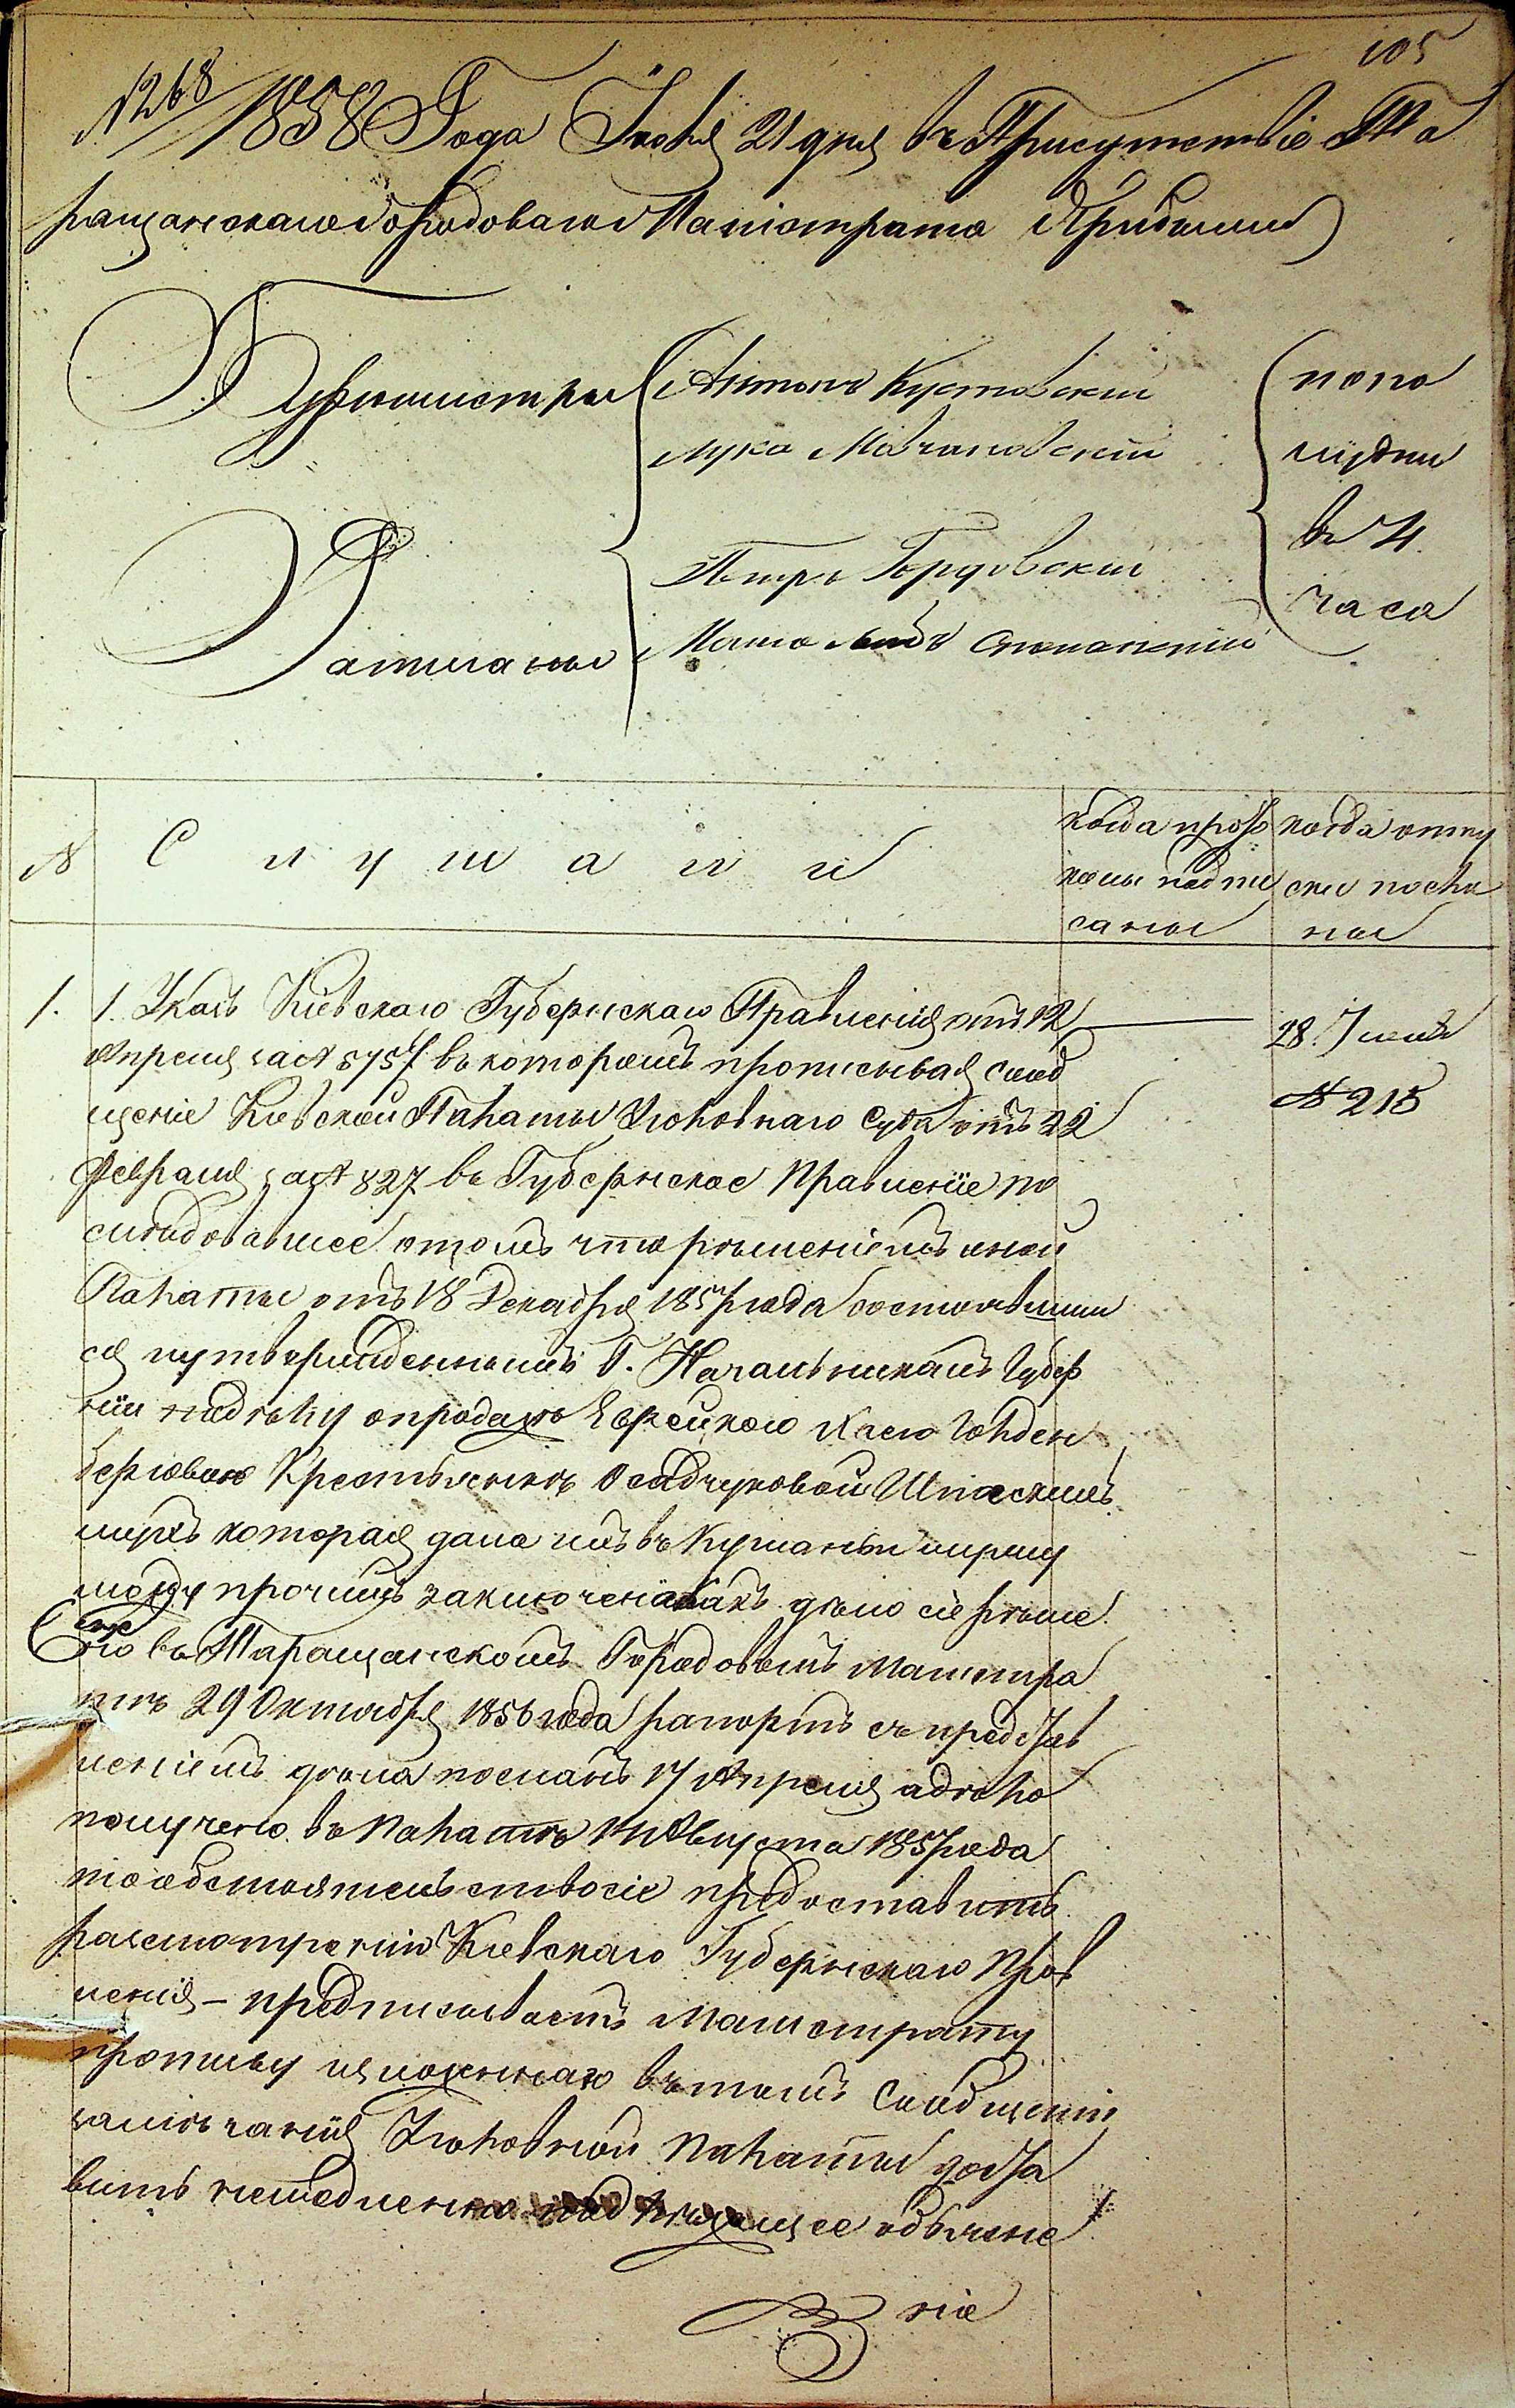 105
№ 268
1858 Года Іюня 21 дня въ Присутствіе Та
ращанскаго Городоваго Магистрата Прибыли
Бургомистры Антонъ Кустовскій
Лука Мочановскій
Ратманы Петръ Гордовскій
по по
лудни
въ 4
часа
№ Слушали
когда прото
колы подпи
саны
когда отпу
ски посла
ны
1. 1. Указъ Кіевскаго Губернскаго Правленія отъ 12
Апреля за № 5754 въ которомъ прописывая сооб
щеніе Кіевской Палаты Уголовнаго Суда отъ 22
Февраля за № 827 въ Губернское Правленіе по
следовавшее отомъ что решеніемъ оной
Палаты отъ 18 Декабря 1857 года состоявшим
ся и утвержденнымъ Г. Начальникомъ Губер
ніи по делу о продаже Еврейкою Хаею Гольден
берговою Крестьянкѣ Осадчуковой Шпанскихъ
мухъ которая дала ихъ въ Кушаньи мужу
между прочимъ заключено какъ дело сіе реше
но въ Таращанскомъ Городовомъ Магистра
тѣ 29 Октября 1856 года рапортъ съ представ
леніемъ дела посланъ 17 Апреля а дело
получено въ Палатѣ 17 Августа 1857 года
то обстоятельство сіе предоставить
разсмотренію Кіевскаго Губернскаго Прав
ленія – предписываетъ Магистрату
противу изложеннаго въ томъ Сообщеніи
замечанія Уголовной Палаты доста
вить немедленно надлежащее объясне
ніе
28. Іюня
№ 215